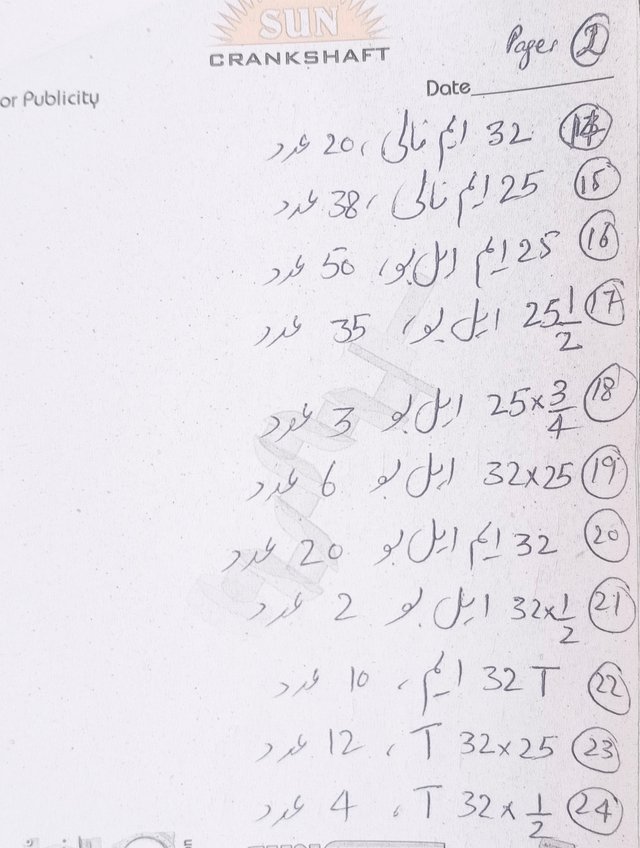 SUN
CRANKSHAFT
Page: 2
or Publicity
Date
14 32 ایم نالی، 20 عدد
15 25 ایم نالی، 38 عدد
16 25 ایم ایل بو، 50 عدد
17 25 1/2 ایل بو، 35 عدد
18 25×3/4 ایل بو 3 عدد
19 32×25 ایل بو 6 عدد
20 32 ایم ایل بو 20 عدد
21 32×1/2 ایل بو 2 عدد
22 32 T ایم، 10 عدد
23 32×25 T، 12 عدد
24 32×1/2 T، 4 عدد